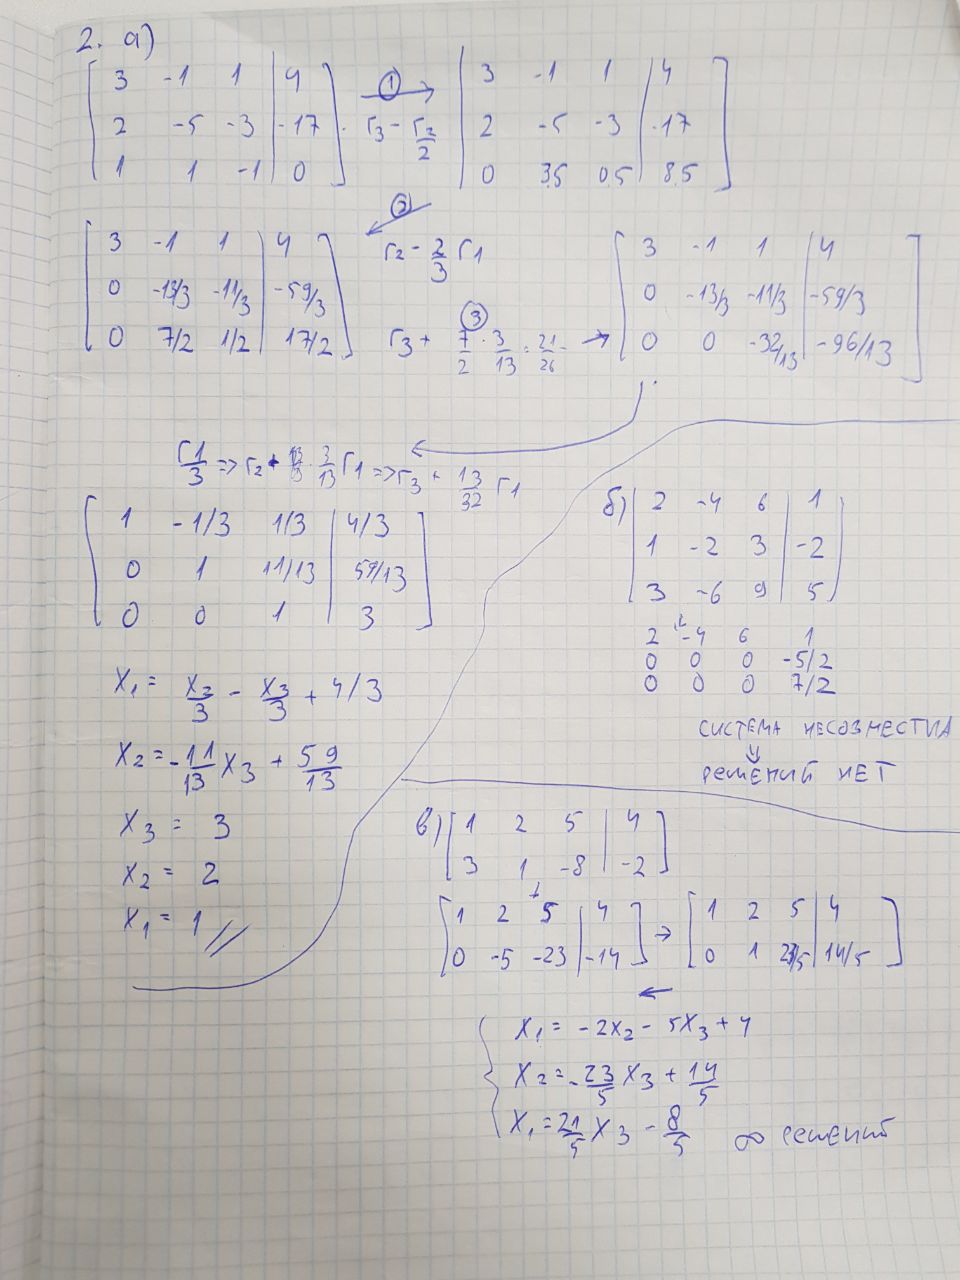 2. а)
[ 3 -1 1 | 4 ]
[ 2 -5 -3 | -17 ]
[ 1 1 -1 | 0 ]
① → r3 - r2/2
[ 3 -1 1 | 4 ]
[ 2 -5 -3 | -17 ]
[ 0 3.5 0.5 | 8.5 ]
② ← r2 - 2/3 r1
[ 3 -1 1 | 4 ]
[ 0 -13/3 -11/3 | -59/3 ]
[ 0 7/2 1/2 | 17/2 ]
③ r3 + 7/2 · 3/13 = 21/26 →
[ 3 -1 1 | 4 ]
[ 0 -13/3 -11/3 | -59/3 ]
[ 0 0 -32/13 | -96/13 ]
r1/3 => r2 · 3/13 r1 => r3 + 13/32 r1
[ 1 -1/3 1/3 | 4/3 ]
[ 0 1 11/13 | 59/13 ]
[ 0 0 1 | 3 ]
x1 = x2/3 - x3/3 + 4/3
x2 = -11/13 x3 + 59/13
x3 = 3
x2 = 2
x1 = 1 //
б)
[ 2 -4 6 | 1 ]
[ 1 -2 3 | -2 ]
[ 3 -6 9 | 5 ]
↓
2 -4 6 1
0 0 0 -5/2
0 0 0 7/2
СИСТЕМА НЕСОВМЕСТНА
⇓
РЕШЕНИЙ НЕТ
в)
[ 1 2 5 | 4 ]
[ 3 1 -8 | -2 ]
↓
[ 1 2 5 | 4 ]
[ 0 -5 -23 | -14 ]
→
[ 1 2 5 | 4 ]
[ 0 1 23/5 | 14/5 ]
←
x1 = -2x2 - 5x3 + 4
x2 = -23/5 x3 + 14/5
x1 = 21/5 x3 - 8/5 ∞ решений